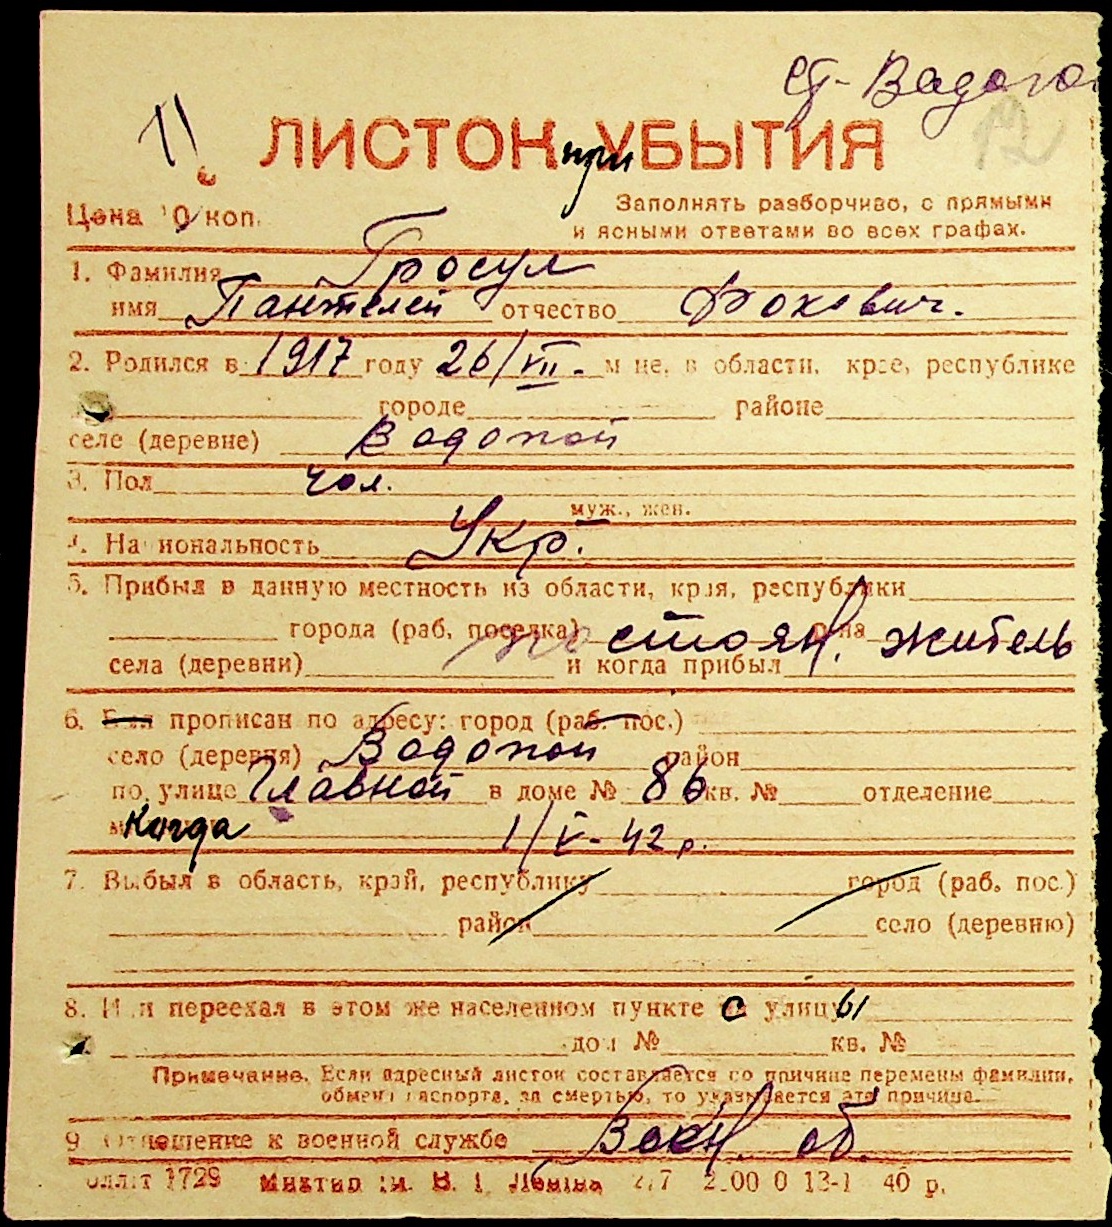 ст. Вадопо
11
12
ЛИСТОК при УБЫТИЯ
Цена 10 коп.
Заполнять разборчиво, с прямыми
и ясными ответами во всех графах.
1. Фамилия Гросул
имя Пантелей отчество Фокович.
2. Родился в 1917 году 26/VII. м це, в области, крае, республике
городе районе
селе (деревне) Вадопой
3. Пол чол.
муж., жен.
4. Национальность Укр.
5. Прибыл в данную местность из области, края, республики
города (раб. поселка) постоян. р на житель
села (деревни) и когда прибыл
6. Был прописан по адресу: город (раб. пос.)
село (деревня) Водопой район
по улице Главной в доме № 86 кв. № отделение
Когда 1/V-42 р.
7. Выбыл в область, край, республику город (раб. пос.)
район село (деревню)
8. Или переехал в этом же населенном пункте с улицы
дом № кв. №
Примечание. Если адресный листок составляется по причине перемены фамилии,
обмена паспорта, за смертью, то указывается эта причина.
9. Отношение к военной службе Воен. об.
1729 им. В. І. Леніна 40 р.